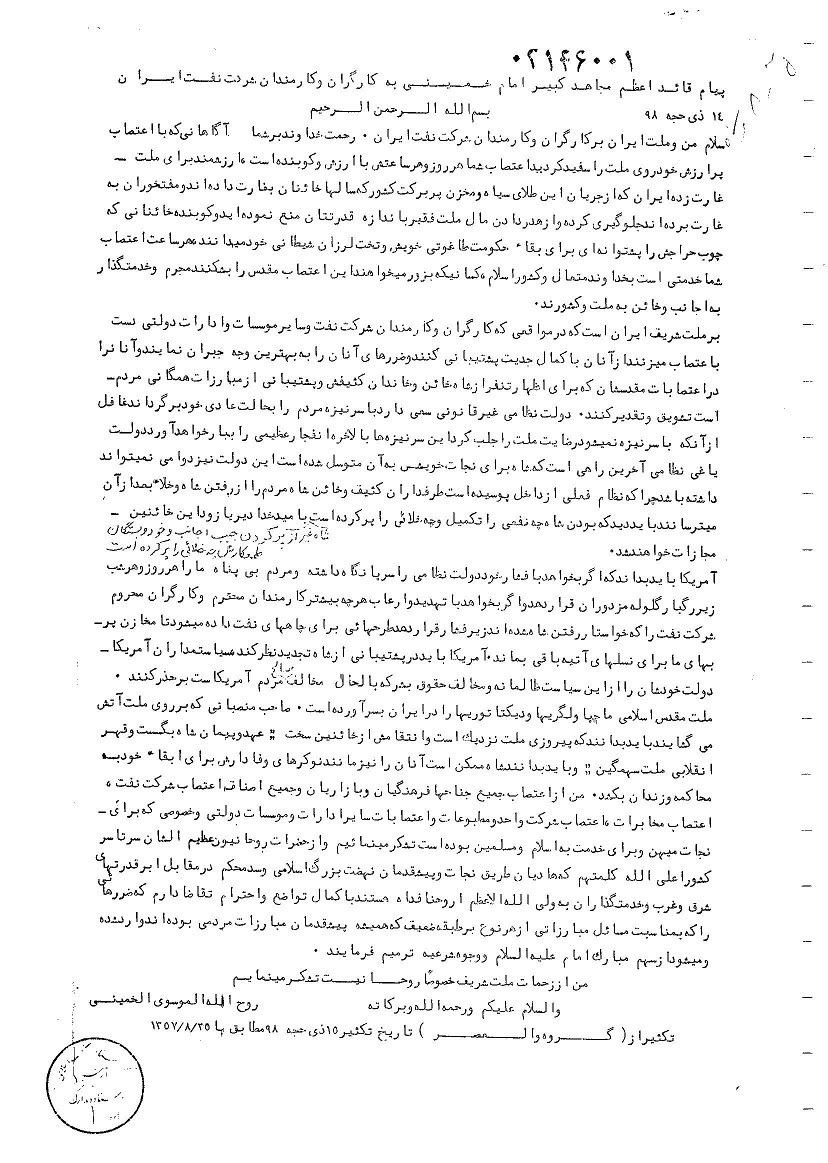 ۰۲۱۴۶۰۰۱
پیام قائد اعظم مجاهد کبیر امام خمینی به کارگران وکارمندان شرکت نفت ایران
۱٤ ذی حجه ۹۸ بسم الله الرحمن الرحیم
سلام من وملت ایران برکارگران وکارمندان شرکت نفت ایران ۰ رحمت خداوند برشما آگاهانی که با اعتصاب
پرارزش خود روی ملت را سفید کردید اعتصاب شما هرروز وهرساعتش با ارزش وکوبنده است ٥ ارزشمند برای ملت ــ
غارت زده ایران که از جریان این طلای سیاه ومخزن پربرکت کشورکه سالها خائنان بغارت داده اند ومفتخوران به
غارت برده اند جلوگیری کرده واز هدر دادن مال ملت فقیر باندازه قدرتتان منع نموده اید وکوبنده خائنانی که
چوب حراجش را پشتوانه ای برای بقاء حکومت طاغوتی خویش وتخت لرزان شیطانی خود میدانند هرساعت اعتصاب
شما خدمتی است بخداوند متعال وکشوراسلام ٥ کسانیکه بزور میخواهند این اعتصاب مقدس را بشکنند مجرم وخدمتگذار
به اجانب وخائن به ملت وکشورند۰
برملت شریف ایران است که در مواقعی که کارگران وکارمندان شرکت نفت وسایر موسسات وادارات دولتی دست
با عتصاب میزنند از آنان با کمال جدیت پشتیبانی کنند وضررهای آنان را به بهترین وجه جبران نمایند وآنانرا
دراعتصابات مقدسشان که برای اظهار تنفر از شاه خائن وخاندان کثیفش وپشتیبانی از مبارزات همگانی مردم ــ
است تشویق وتقدیر کنند۰ دولت نظامی غیرقانونی سعی دارد با سرنیزه مردم را بحالت عادی خود برگرداند غافل
از آنکه با سرنیزه نمیشود رضایت ملت را جلب کرد این سرنیزه ها بالاخره انفجار عظیمی را ببار خواهد آورد دولت
یاغی نظامی آخرین راهی است که شاه برای نجات خویش به آن متوسل شده است این دولت نیز دوامی نمیتواند
داشته باشد چراکه نظام فعلی از داخل پوسیده است طرفداران کثیف وخائن شاه مردم را از رفتن شاه وخلاء بعد از آن
میترسانند باید دید که بودن شاه چه نقصی را تکمیل وچه خلائی را پر کرده است با مید خدا دیر یا زود این خائنین ــ
شاه غیر از پر کردن جیب اجانب و خود وبستگان
مجازات خواهند شد۰
طمعکارش چه خلائی را پر کرده است
آمریکا باید بداند که اگر بخواهد با فشار خود دولت نظامی را سر پا نگاه داشته ومردم بی پناه ما را هرروز وهرشب
زیر رگبار گلوله مزدوران قرار دهد واگر بخواهد با تهدید وارعاب هرچه بیشتر کارمندان محترم وکارگران محروم
شرکت نفت را که خواستار رفتن شاه شده اند زیر فشار قرار دهد طرحهائی برای چاههای نفت داده میشود تا مخازن پرــ
بهای ما برای نسلهای آتیه باقی بماند۰ آمریکا باید در پشتیبانی از شاه تجدید نظر کند سیاستمداران آمریکا ــ
دولت خودشان را از این سیاست ظالمانه ومخالف حقوق بشر که بالحال مخالف مردم آمریکاست برحذر کنند۰
ملت مقدس اسلامی ما چپاولگریها ودیکتاتوریها را در ایران بسر آورده است۰ صاحب منصبانی که برروی ملت آتش
می گشایند باید بدانند که پیروزی ملت نزدیك است وانتقامش از خائنین سخت ؛؛ عهد وپیمان شاه بگست وقهر
انقلابی ملت سهمگین ؛؛ وباید بدانند شاه ممکن است آنان را نیز مانند نوکرهای وفادارش برای ابقاء خود به
محاکمه وزندان بکشد۰ من از اعتصاب جمیع جناحها فرهنگیان وبازاریان وجمیع اصناف ٥ اعتصاب شرکت نفت ٥
اعتصاب مخابرات ٥ اعتصاب شرکت واحد ومطبوعات واعتصابات سایر ادارات وموسسات دولتی وخصوصی که برای ــ
نجات میهن وبرای خدمت به اسلام ومسلمین بوده است تشکر مینمائیم واز حضرات روحانیون عظیم الشان سرتاسر
کشور اعلی الله کلمتهم که هادیان طریق نجات وپیشقدمان نهضت بزرگ اسلامی وسد محکم در مقابل ابرقدرتهای
شرق وغرب وخدمتگذاران به ولی الله الاعظم ارواحنا فداه هستند با کمال تواضع واحترام تقاضا دارم که ضررهائی
را که بمناسبت مسائل مبارزاتی از هر نوع بر طبقه ضعیف که همیشه پیشقدمان مبارزات مردمی بوده اند وارد شده
ومیشود از سهم مبارك امام علیه السلام ووجوه شرعیه ترمیم فرمایند ۰
من از زحمات ملت شریف خصوصاً روحانیت تشکر مینمایم
والسلام علیکم ورحمه الله وبرکاته روح الله الموسوی الخمینی
تکثیراز( گـــروه والـــعصـــر ) تاریخ تکثیر ۱۵ ذی حجه ۹۸ مطابق با ۱۳۵۷/۸/۲۵